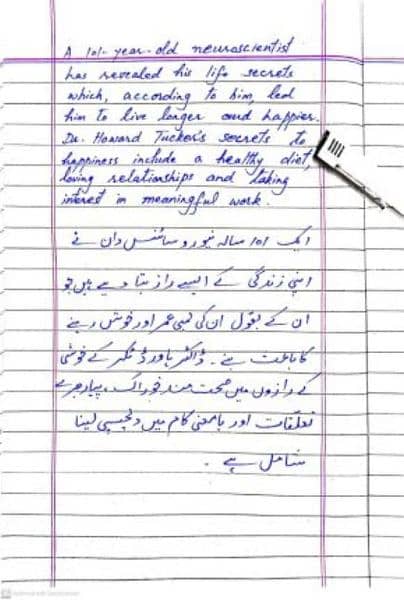 A 101-year-old neuroscientist
has revealed his life secrets
which, according to him, led
him to live longer and happier.
Dr. Howard Tucker's secrets to
happiness include a healthy diet,
loving relationships and taking
interest in meaningful work.
ایک 101 سالہ نیورو سائنس دان نے
اپنی زندگی کے ایسے راز بتا دیے ہیں جو
ان کے بقول ان کی لمبی عمر اور خوش رہنے
کا باعث بنے۔ ڈاکٹر ہاورڈ ٹکر کے خوشی
کے رازوں میں صحت مند خوراک، پیار بھرے
تعلقات اور بامعنی کام میں دلچسپی لینا
شامل ہے۔